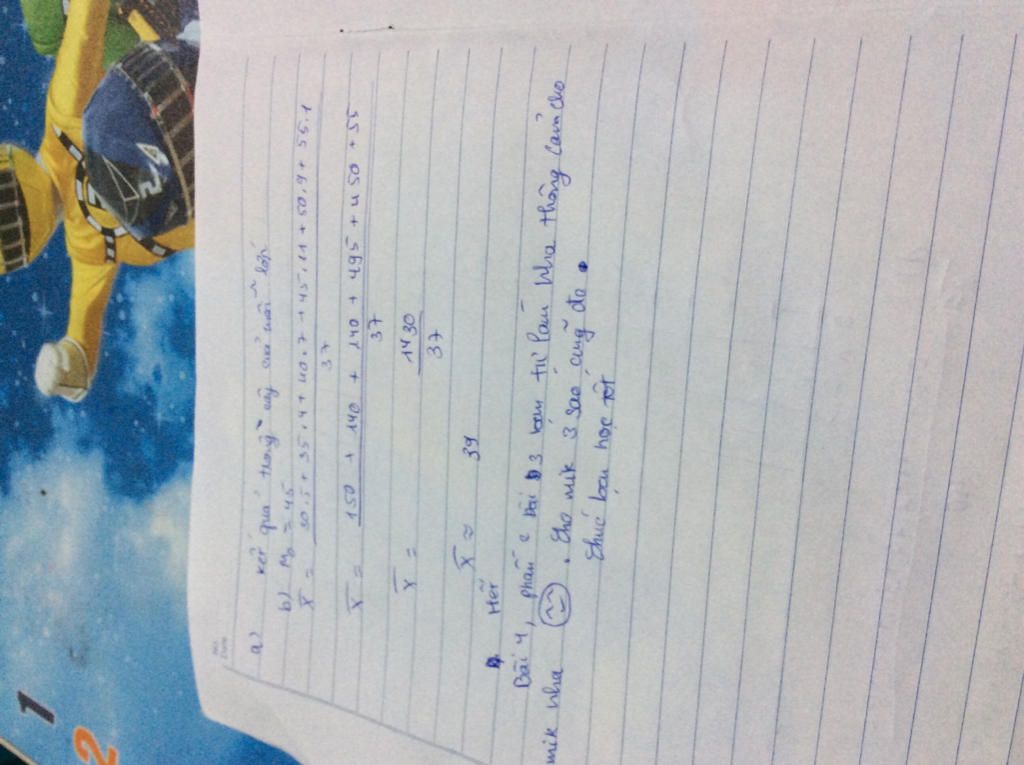 a) kết quả trồng cây của mỗi lớp
b) M₀ = 45
X̄ = 30.5 + 35.4 + 40.7 + 45.11 + 50.9 + 55.1
37
X̄ = 150 + 140 + 140 + 495 + 450 + 55
37
X̄ = 1430
37
X̄ ≈ 39
Hết
Bài 4, phần c bài 3 bạn tự làm nha thông cảm cho
mik nha . Cho mik 3 sao cũng đc
Chúc bạn học tốt
1
2
2